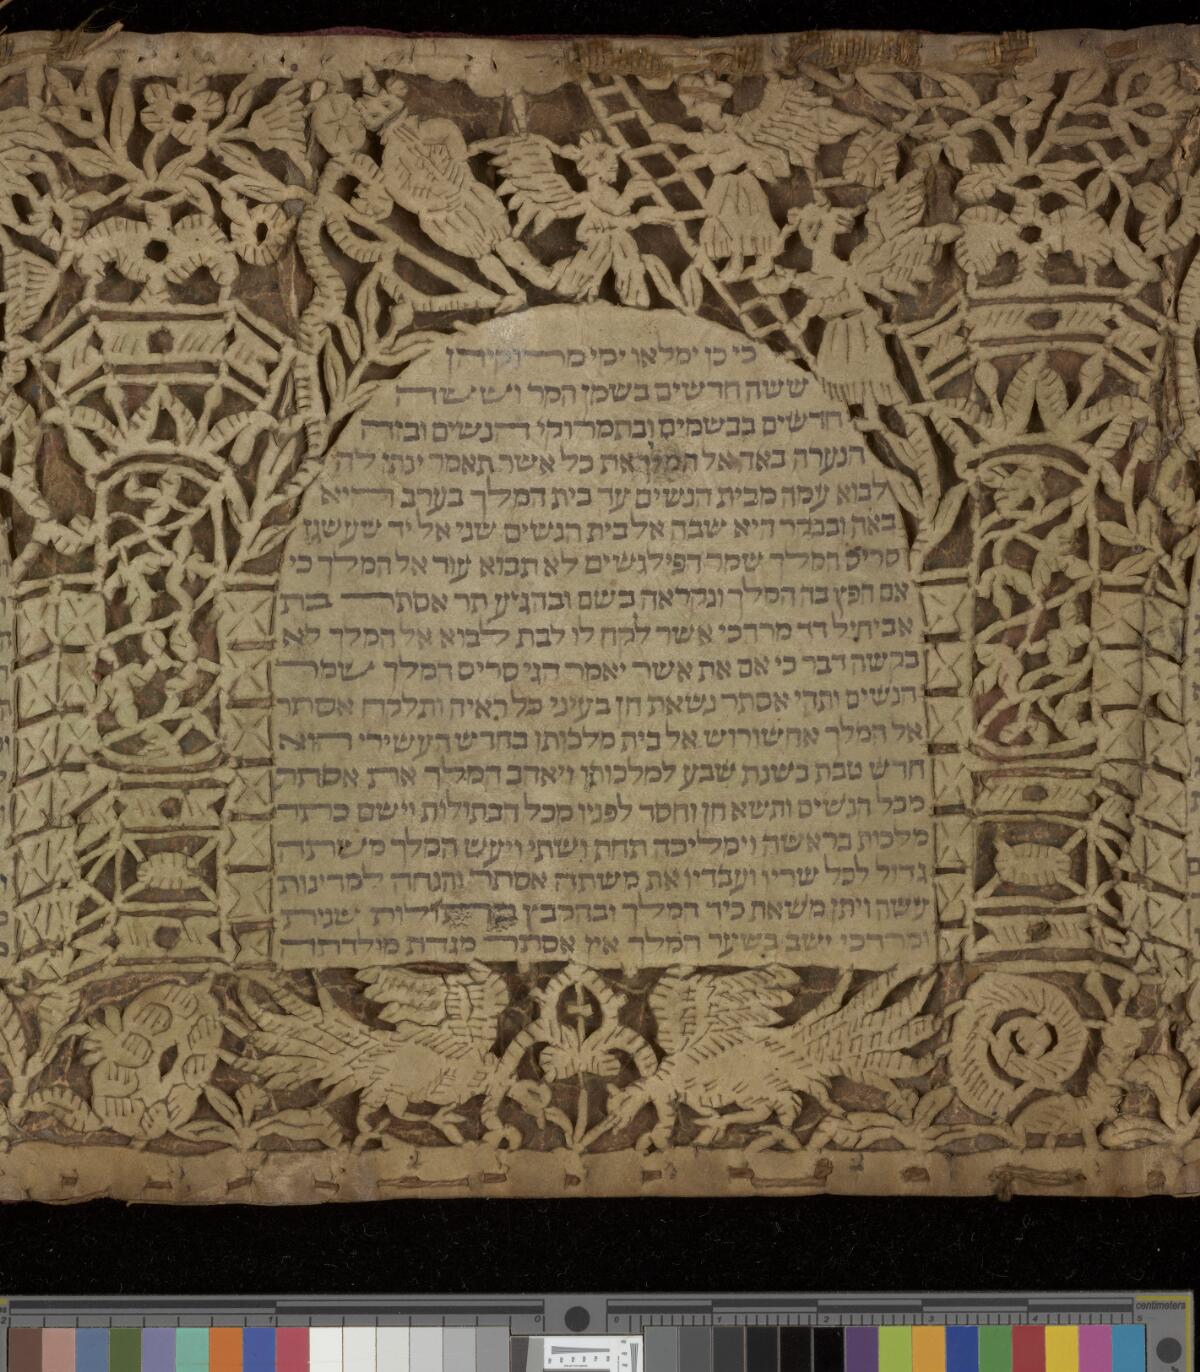 כי כן ימלאו ימי מרוקיהן
ששה חדשים בשמן המר וששה
חדשים בבשמים ובתמרוקי הנשים ובזה
הנערה באה אל המלך את כל אשר תאמר ינתן לה
לבוא עמה מבית הנשים עד בית המלך בערב היא
באה ובבקר היא שבה אל בית הנשים שני אל יד שעשגז
סריס המלך שמר הפילגשים לא תבוא עוד אל המלך כי
אם חפץ בה המלך ונקראה בשם ובהגיע תר אסתר בת
אביחיל דד מרדכי אשר לקח לו לבת לבוא אל המלך לא
בקשה דבר כי אם את אשר יאמר הגי סריס המלך שמר
הנשים ותהי אסתר נשאת חן בעיני כל ראיה ותלקח אסתר
אל המלך אחשורוש אל בית מלכותו בחדש העשירי הוא
חדש טבת בשנת שבע למלכותו ויאהב המלך את אסתר
מכל הנשים ותשא חן וחסד לפניו מכל הבתולות וישם כתר
מלכות בראשה וימליכה תחת ושתי ויעש המלך משתה
גדול לכל שריו ועבדיו את משתה אסתר והנחה למדינות
עשה ויתן משאת כיד המלך ובהקבץ בתולות שנית
ומרדכי ישב בשער המלך אין אסתר מגדת מולדתה